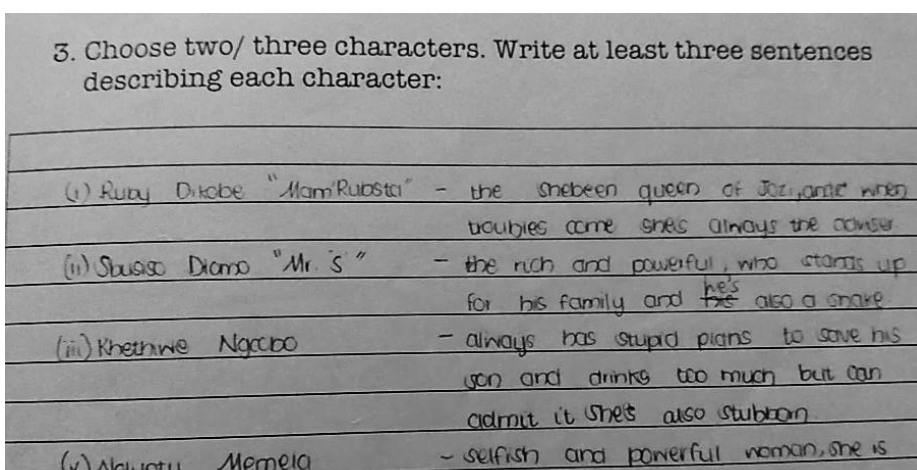 3. Choose two/ three characters. Write at least three sentences
describing each character:
(i) Ruby Dikobe "Mam'Rubsta" - the shebeen queen of Jozi, and when
troubles come she's always the adviser
(ii) Sbusiso Dlomo "Mr. S" - the rich and powerful, who stands up
for his family and he's also a snake
(iii) Khethiwe Ngcobo - always has stupid plans to save his
son and drinks too much but can
admit it she's also stubborn
(v) Memela - selfish and powerful woman, she is